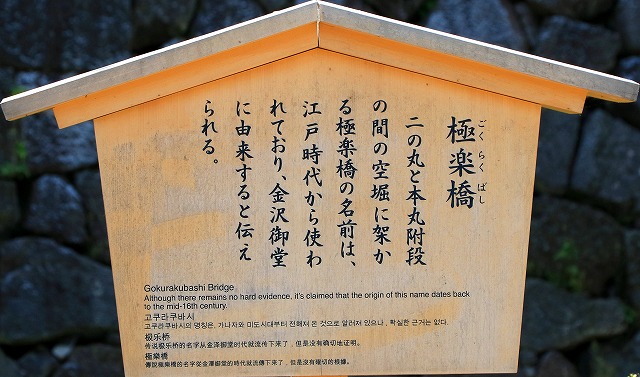 極楽橋
ごくらくばし
二の丸と本丸附段
の間の空堀に架か
る極楽橋の名前は、
江戸時代から使わ
れており、金沢御堂
に由来すると伝え
られる。
Gokurakubashi Bridge
Although there remains no hard evidence, it's claimed that the origin of this name dates back
to the mid-16th century.
고쿠라쿠바시
고쿠라쿠바시의 명칭은, 가나자와 미도시대부터 전해져 온 것으로 알려져 있으나, 확실한 근거는 없다.
极乐桥
传说极乐桥的名字从金泽御堂的时代就流传下来了，但是没有确切地证明。
極樂橋
傳說極樂橋的名字從金澤御堂的時代就流傳下來了，但是沒有確切的根據。